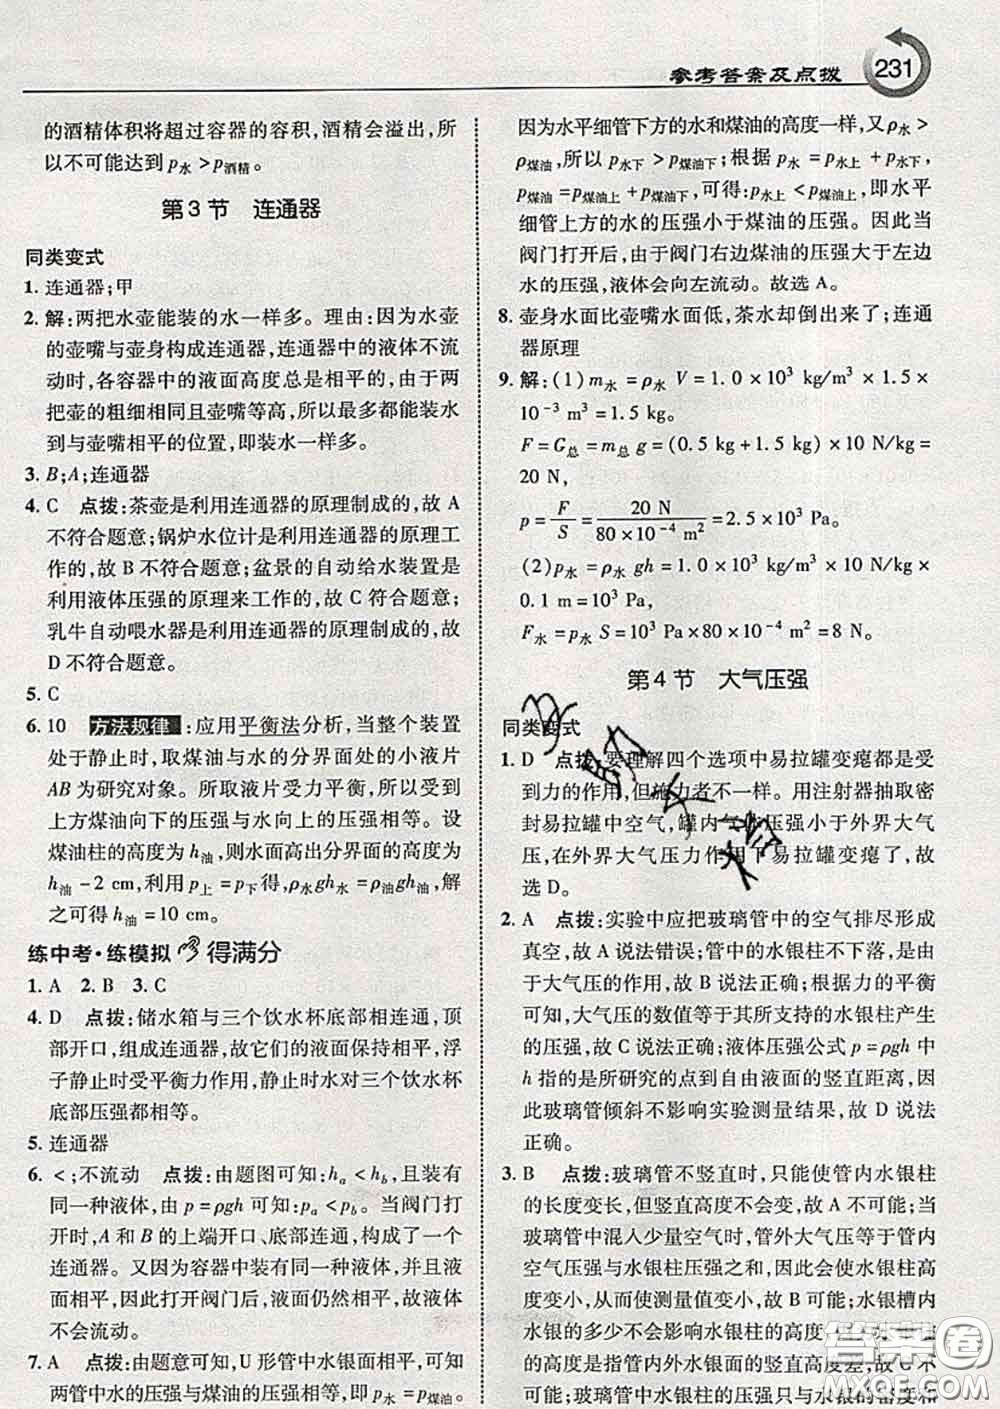 参考答案及点拨 231
的酒精体积将超过容器的容积，酒精会溢出，所
以不可能达到 p水 > p酒精。
第 3 节 连通器
同类变式
1. 连通器；甲
2. 解：两把水壶能装的水一样多。理由：因为水壶
的壶嘴与壶身构成连通器，连通器中的液体不流
动时，各容器中的液面高度总是相平的，由于两
把壶的粗细相同且壶嘴等高，所以最多都能装水
到与壶嘴相平的位置，即装水一样多。
3. B；A；连通器
4. C 点拨：茶壶是利用连通器的原理制成的，故 A
不符合题意；锅炉水位计是利用连通器的原理工
作的，故 B 不符合题意；盆景的自动给水装置是
利用液体压强的原理来工作的，故 C 符合题意；
乳牛自动喂水器是利用连通器的原理制成的，故
D 不符合题意。
5. C
6. 10 方法规律：应用平衡法分析，当整个装置
处于静止时，取煤油与水的分界面处的小液片
AB 为研究对象。所取液片受力平衡，所以受到
上方煤油向下的压强与水向上的压强相等。设
煤油柱的高度为 h油，则水面高出分界面的高度为
h油 - 2 cm，根据 p上 = p下得，ρ水gh水 = ρ油gh油，解
之可得 h油 = 10 cm。
练中考·练模拟 得满分
1. A 2. B 3. C
4. D 点拨：储水箱与三个饮水杯底部相连通，顶
部开口，组成连通器，故它们的液面保持相平，浮
子静止时受平衡力作用，静止时水对三个饮水杯
底部压强都相等。
5. 连通器
6. <；不流动 点拨：由题图可知：ha < hb，且装有
同一种液体，由 p = ρgh 可知：pa < pb。当阀门打
开时，A 和 B 的上端开口、底部连通，构成了一个
连通器。又因为容器中装有同一种液体，并且液
面相平，因此打开阀门后，液面仍然相平，故液体
不会流动。
7. A 点拨：由题意可知，U 形管中水银面相平，可知
两管中水的压强与煤油的压强相等，即 p水 = p煤油。
因为水平细管下方的水和煤油的高度一样，又 ρ水 >
ρ煤油，所以 p水下 > p煤油下；根据 p水 = p水上 + p水下，
p煤油 = p煤油上 + p煤油下，可得：p水上 < p煤油上，即水平
细管上方的水的压强小于煤油的压强。因此当
阀门打开后，由于阀门右边煤油的压强大于左边
水的压强，液体会向左流动。故选 A。
8. 壶身水面比壶嘴水面低，茶水却倒出来了；连通
器原理
9. 解：(1) m水 = ρ水 V = 1.0 × 10³ kg/m³ × 1.5 ×
10⁻³ m³ = 1.5 kg。
F = G总 = m总 g = (0.5 kg + 1.5 kg) × 10 N/kg =
20 N，
p = F/S = 20 N / 80 × 10⁻⁴ m² = 2.5 × 10³ Pa。
(2) p水 = ρ水 gh = 1.0 × 10³ kg/m³ × 10 N/kg ×
0.1 m = 10³ Pa，
F水 = p水 S = 10³ Pa × 80 × 10⁻⁴ m² = 8 N。
第 4 节 大气压强
同类变式
1. D 点拨：要理解四个选项中易拉罐变瘪都是受
到力的作用，但施力者不一样。用注射器抽取密
封易拉罐中空气，罐内气体压强小于外界大气
压，在外界大气压力作用下易拉罐变瘪了，故
选 D。
2. A 点拨：实验中应把玻璃管中的空气排尽形成
真空，故 A 说法错误；管中的水银柱不下落，是由
于大气压的作用，故 B 说法正确；根据力的平衡
可知，大气压的数值等于其所支持的水银柱产生
的压强，故 C 说法正确；液体压强公式 p = ρgh 中
h 指的是所研究的点到自由液面的竖直距离，因
此玻璃管倾斜不影响实验测量结果，故 D 说法
正确。
3. B 点拨：玻璃管不竖直时，只能使管内水银柱
的长度变长，但竖直高度不会变，故 A 不可能；当
玻璃管中混入少量空气时，外界大气压等于管内
空气压强与水银柱压强之和，因此水银柱的高度
变小，从而使测量值变小，故 B 可能；水银槽内
水银的多少不会影响水银柱的高度，
是指水银柱到水银面的竖直高度，故 C 不
可能；玻璃管中水银柱的压强只与水银的密度和
答案圈
MXQE.COM